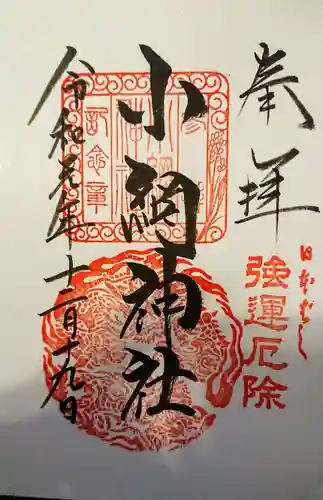 奉拝
日本ばし
強運厄除
小網神社
令和元年十二月十九日